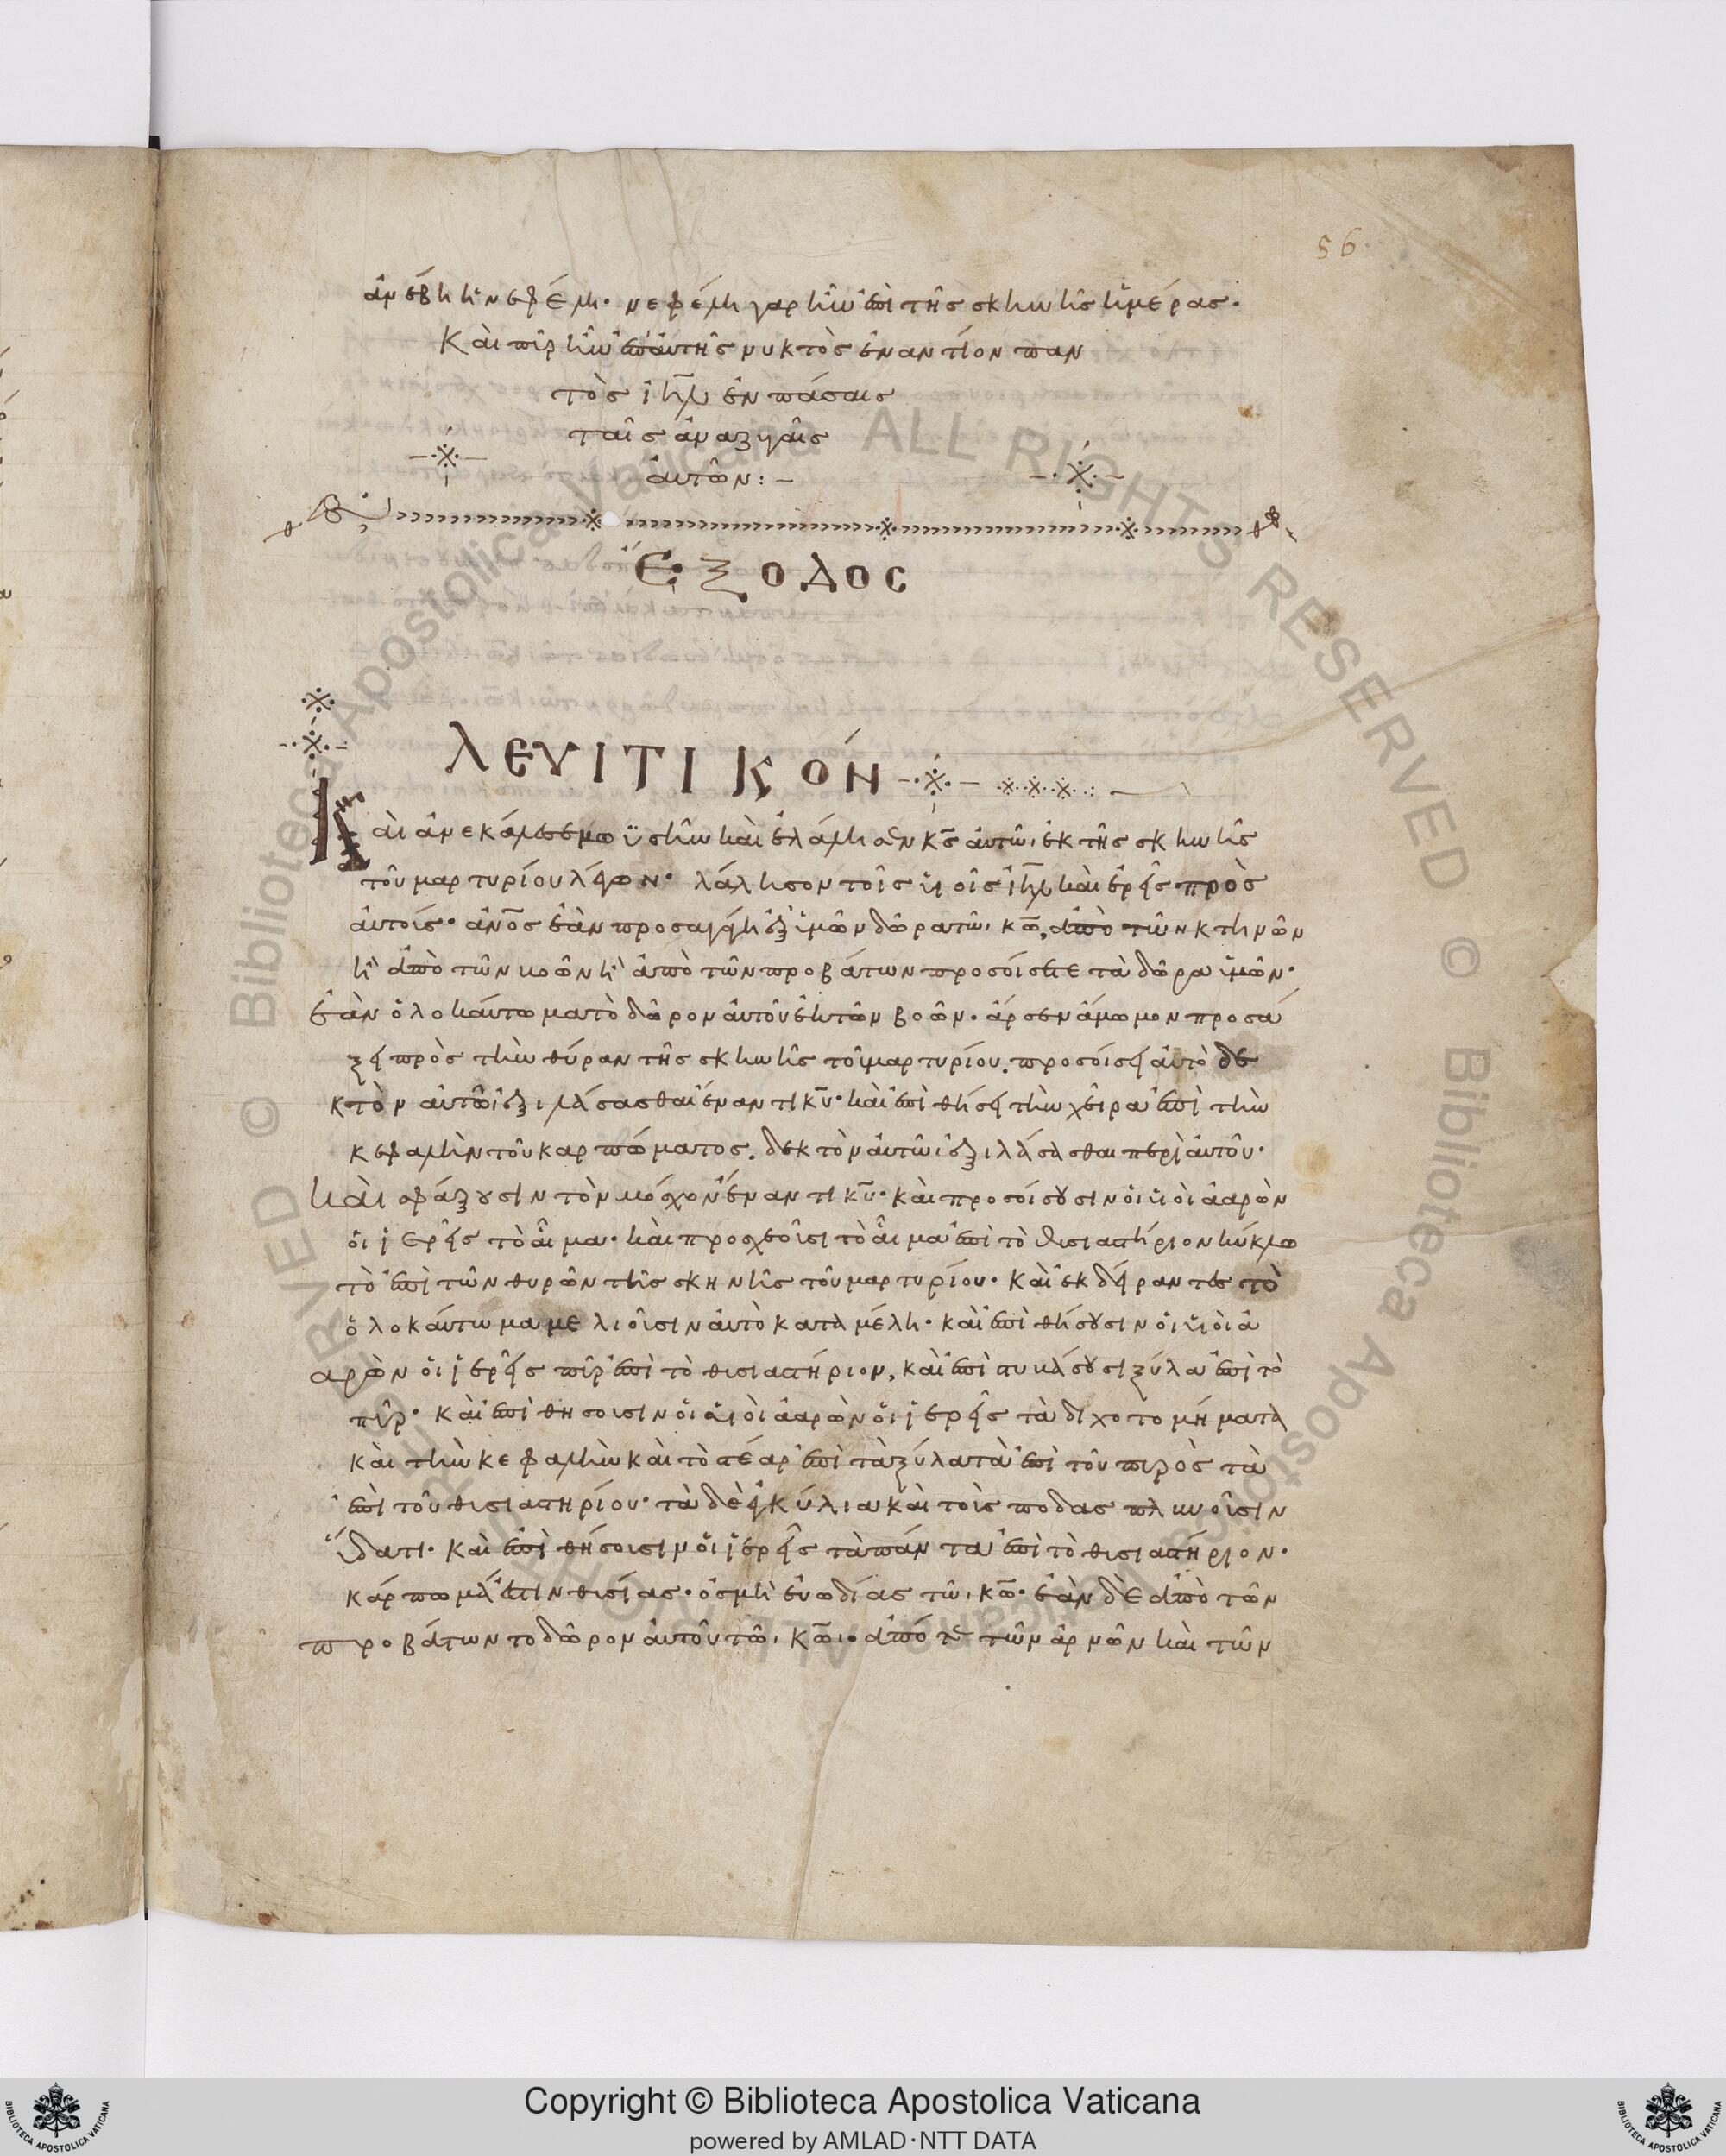 56
ἀνέβη ἡ νεφέλη· νεφέλη γαρ ἦν ἐπὶ τῆς σκηνῆς ἡμέρας·
Καὶ πῦρ ἦν ἐπ αὐτῆς νυκτὸς ἐναντίον παν
τὸς ἰηλ ἐν πάσαις
ταῖς ἀναζυγαῖς
αὐτῶν:–
ἜΞΟΔΟC
ΛΕΥΙΤΙΚΌΝ
Καὶ ἀνεκάλεσε μωϋσῆν καὶ ἐλάλησεν κς αὐτῶι ἐκ τῆς σκηνῆς
τοῦ μαρτυρίου λέγων· λάλησον τοῖς υἱοῖς ἰηλ καὶ ἐρεῖς πρὸς
αὐτούς· ἄνος ἐὰν προσαγάγη ἐξ ὑμῶν δῶρα τῶι κω, ἀπὸ τῶν κτηνῶν
ἢ ἀπὸ τῶν βοῶν ἢ ἀπὸ τῶν προβάτων προσοίσετε τὰ δῶρα ὑμῶν·
ἐὰν ὁλοκαύτωμα τὸ δῶρον αὐτοῦ ἐκ τῶν βοῶν· ἄρσεν ἄμωμον προσά
ξει πρὸς τὴν θύραν τῆς σκηνῆς τοῦ μαρτυρίου. προσοίσει αὐτὸ δε
κτὸν αὐτῶ ἐξιλάσασθαι ἔναντι κυ· καὶ ἐπιθήσει τὴν χεῖρα ἐπὶ τὴν
κεφαλὴν τοῦ καρπώματος. δεκτὸν αὐτῶι ἐξιλάσασθαι περὶ αὐτοῦ·
Καὶ σφάξουσιν τὸν μόσχον ἔναντι κυ· καὶ προσοίσουσιν οἱ υἱοὶ ἀαρὼν
οἱ ἱερεῖς τὸ αἷμα· καὶ προσχεοῦσι τὸ αἷμα ἐπὶ τὸ θυσιαστήριον κύκλω
τὸ ἐπὶ τῶν θυρῶν τῆς σκηνῆς τοῦ μαρτυρίου· καὶ ἐκδείραντες τὸ
ὁλοκαύτωμα μελιοῦσιν αὐτὸ κατὰ μέλη· καὶ ἐπιθήσουσιν οἱ υἱοὶ ἀ
αρὼν οἱ ἱερεῖς πῦρ ἐπὶ τὸ θυσιαστήριον, καὶ ἐπιστυκάσουσι ξύλα ἐπὶ τὸ
πῦρ· καὶ ἐπιθήσουσιν οἱ υἱοὶ ἀαρὼν οἱ ἱερεῖς τὰ διχοτομήματα
καὶ τὴν κεφαλὴν καὶ τὸ στέαρ ἐπὶ τὰ ξύλα τὰ ἐπὶ τοῦ πυρὸς τὰ
ἐπὶ τοῦ θυσιαστηρίου· τὰ δὲ ἐγκοίλια καὶ τοὺς πόδας πλυνοῦσιν
ὕδατι· καὶ ἐπιθήσουσιν οἱ ἱερεῖς τὰ πάντα ἐπὶ τὸ θυσιαστήριον·
κάρπωμά ἐστιν θυσίας· ὀσμὴ εὐωδίας τῶι κω· ἐὰν δὲ ἀπὸ τῶν
προβάτων το δῶρον αὐτοῦ τῶι κωι· ἀπό τε τῶν ἀρνῶν καὶ τῶν
© Biblioteca Apostolica Vaticana ALL RIGHTS RESERVED
Copyright © Biblioteca Apostolica Vaticana
powered by AMLAD·NTT DATA
BIBLIOTECA APOSTOLICA VATICANA
BIBLIOTECA APOSTOLICA VATICANA